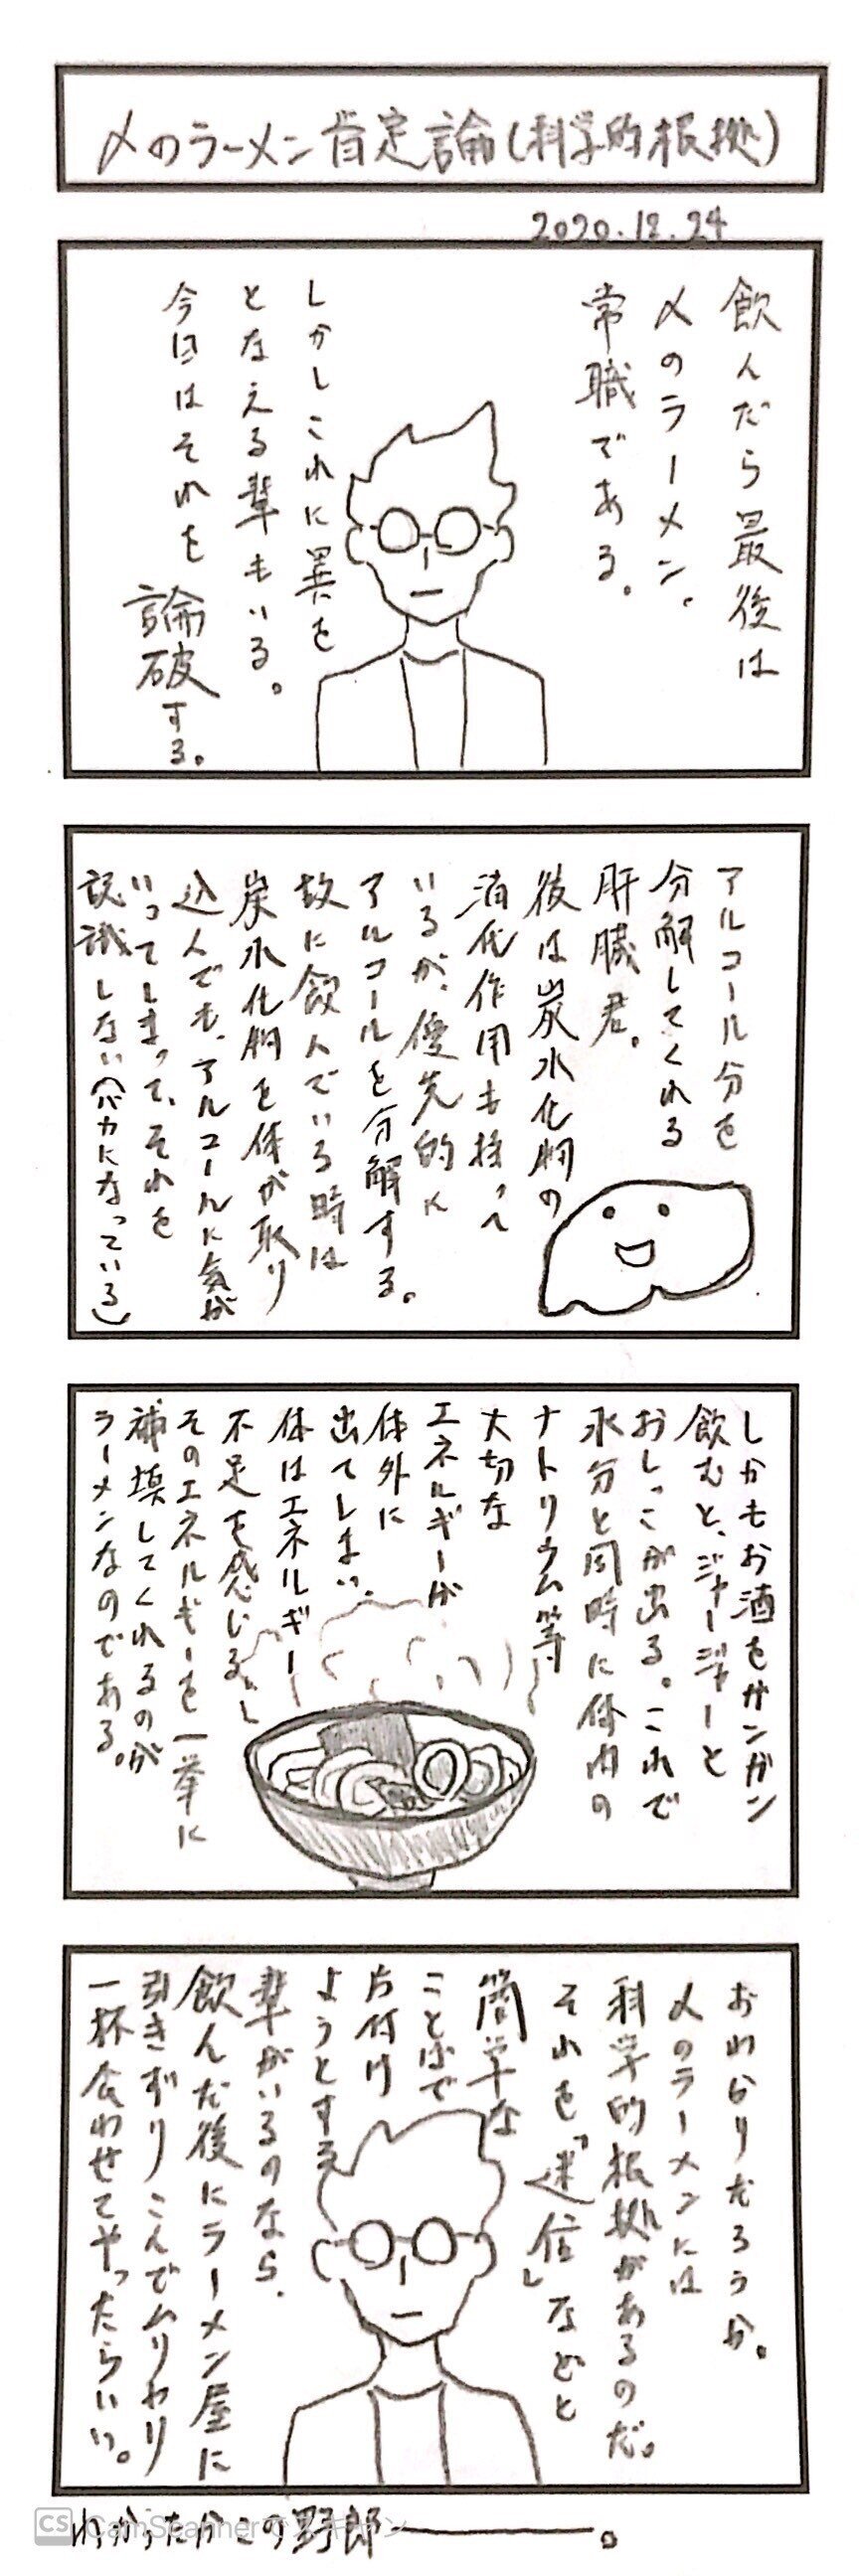 〆のラーメン肯定論(科学的根拠)
2020.12.24
飲んだら最後は
〆のラーメン。
常職である。
しかしこれに異を
となえる輩もいる。
今日はそれを
論破する。
アルコール分を
分解してくれる
肝臓君。
彼は炭水化物の
消化作用も担って
いるが、優先的に
アルコールを分解する。
故に飲んでいる時は
炭水化物を体が取り
込んでも、アルコールに気が
いってしまって、それを
認識しない(バカになっている)
しかもお酒をガンガン
飲むと、ジャージャーと
おしっこが出る。これで
水分と同時に体内の
ナトリウム等
大切な
エネルギーが
体外に
出てしまい、
体はエネルギー
不足を感じる。
そのエネルギーを一挙に
補填してくれるのが
ラーメンなのである。
おわかりだろうか。
〆のラーメンには
科学的根拠があるのだ。
それを「迷信」などと
簡単な
ことばで
片付け
ようとする
輩がいるのなら、
飲んだ後にラーメン屋に
引きずりこんでムリやり
一杯食わせてやったらいい。
わかったかこの野郎―――。
CS CamScannerでスキャン